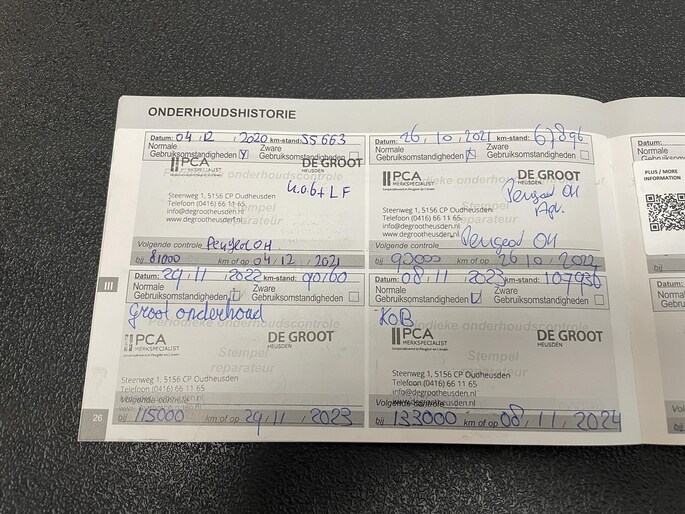 ONDERHOUDSHISTORIE
Datum: 04, 12, 2020 km-stand: 55663
Normale Gebruiksomstandigheden Zware Gebruiksomstandigheden
PCA MERKSPECIALIST DE GROOT HEUSDEN
Steenweg 1, 5156 CP Oudheusden
Telefoon (0416) 66 11 65
info@degrootheusden.nl
www.degrootheusden.nl
Volgende controle Peugeot OH
bij 81000 km of op 04, 12, 2021
26, 10, 2021 km-stand: 67896
Normale Gebruiksomstandigheden Zware Gebruiksomstandigheden
Periodieke onderhoudscontrole
PCA MERKSPECIALIST DE GROOT HEUSDEN
Stempel
Steenweg 1, 5156 CP Oudheusden
Telefoon (0416) 66 11 65
info@degrootheusden.nl
www.degrootheusden.nl
Volgende controle
bij 92000 km of op 26 10, 2022
III
Datum: 29, 11, 2022 km-stand: 90160
Normale Gebruiksomstandigheden Zware Gebruiksomstandigheden
Groot onderhoud
Periodieke onderhoudscontrole
PCA MERKSPECIALIST DE GROOT HEUSDEN
Stempel reparateur
Steenweg 1, 5156 CP Oudheusden
Telefoon (0416) 66 11 65
Volgende controle
26
bij 115000 km of op 29, 11, 2023
Datum: 08, 11, 2023 km-stand: 107936
Normale Gebruiksomstandigheden Zware Gebruiksomstandigheden
KOB
Periodieke onderhoudscontrole
PCA MERKSPECIALIST DE GROOT HEUSDEN
Stempel reparateur
Steenweg 1, 5156 CP Oudheusden
Telefoon (0416) 66 11 65
info@degrootheusden.nl
www.degrootheusden.nl
Volgende controle
bij 133000 km of op 08, 11, 2024
PLUS / MORE
INFORMATION